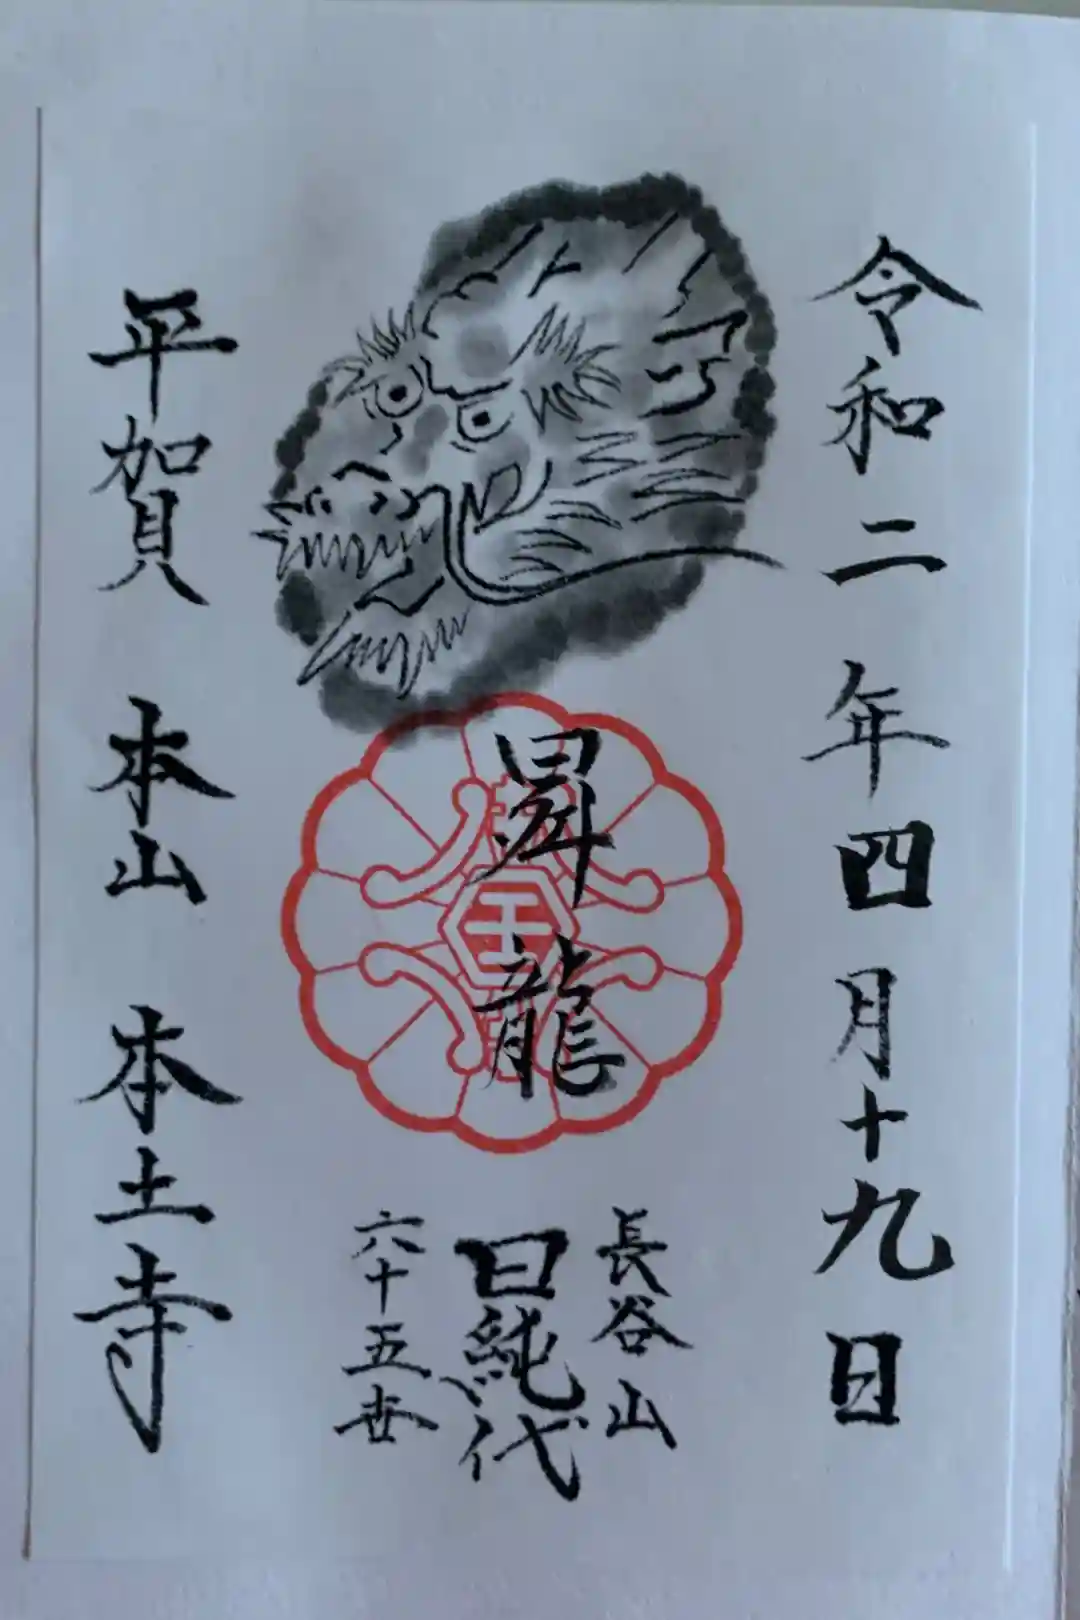 令和二年四月十九日
昇龍
長谷山
日純代
六十五世
平賀 本山 本土寺